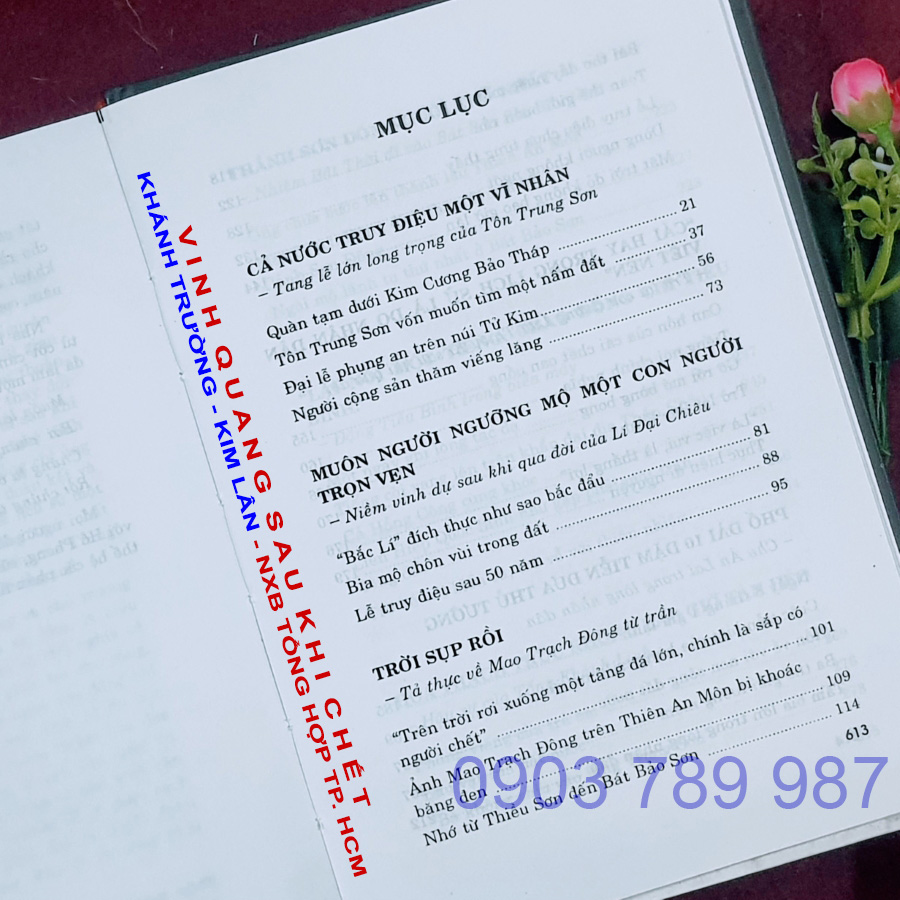 MỤC LỤC
CẢ NƯỚC TRUY ĐIỆU MỘT VĨ NHÂN
– Tang lễ lớn long trọng của Tôn Trung Sơn
Quàn tạm dưới Kim Cương Bảo Tháp 21
Tôn Trung Sơn vốn muốn tìm một nấm đất 37
Đại lễ phụng an trên núi Tử Kim 56
Người cộng sản thăm viếng lăng 73
MUÔN NGƯỜI NGƯỠNG MỘ MỘT CON NGƯỜI
TRỌN VẸN
– Niềm vinh dự sau khi qua đời của Lí Đại Chiêu
“Bắc Lí” đích thực như sao bắc đẩu 81
Bia mộ chôn vùi trong đất 88
Lễ truy điệu sau 50 năm 95
TRỜI SỤP RỒI
– Tả thực về Mao Trạch Đông từ trần
“Trên trời rơi xuống một tảng đá lớn, chính là sắp có
người chết” 101
Ảnh Mao Trạch Đông trên Thiên An Môn bị khoác
băng đen 109
Nhớ từ Thiều Sơn đến Bát Bảo Sơn 114
613
VINH QUANG SAU KHI CHẾT
KHÁNH TRƯỜNG - KIM LÂN - NXB TỔNG HỢP TP. HCM
0903 789 987